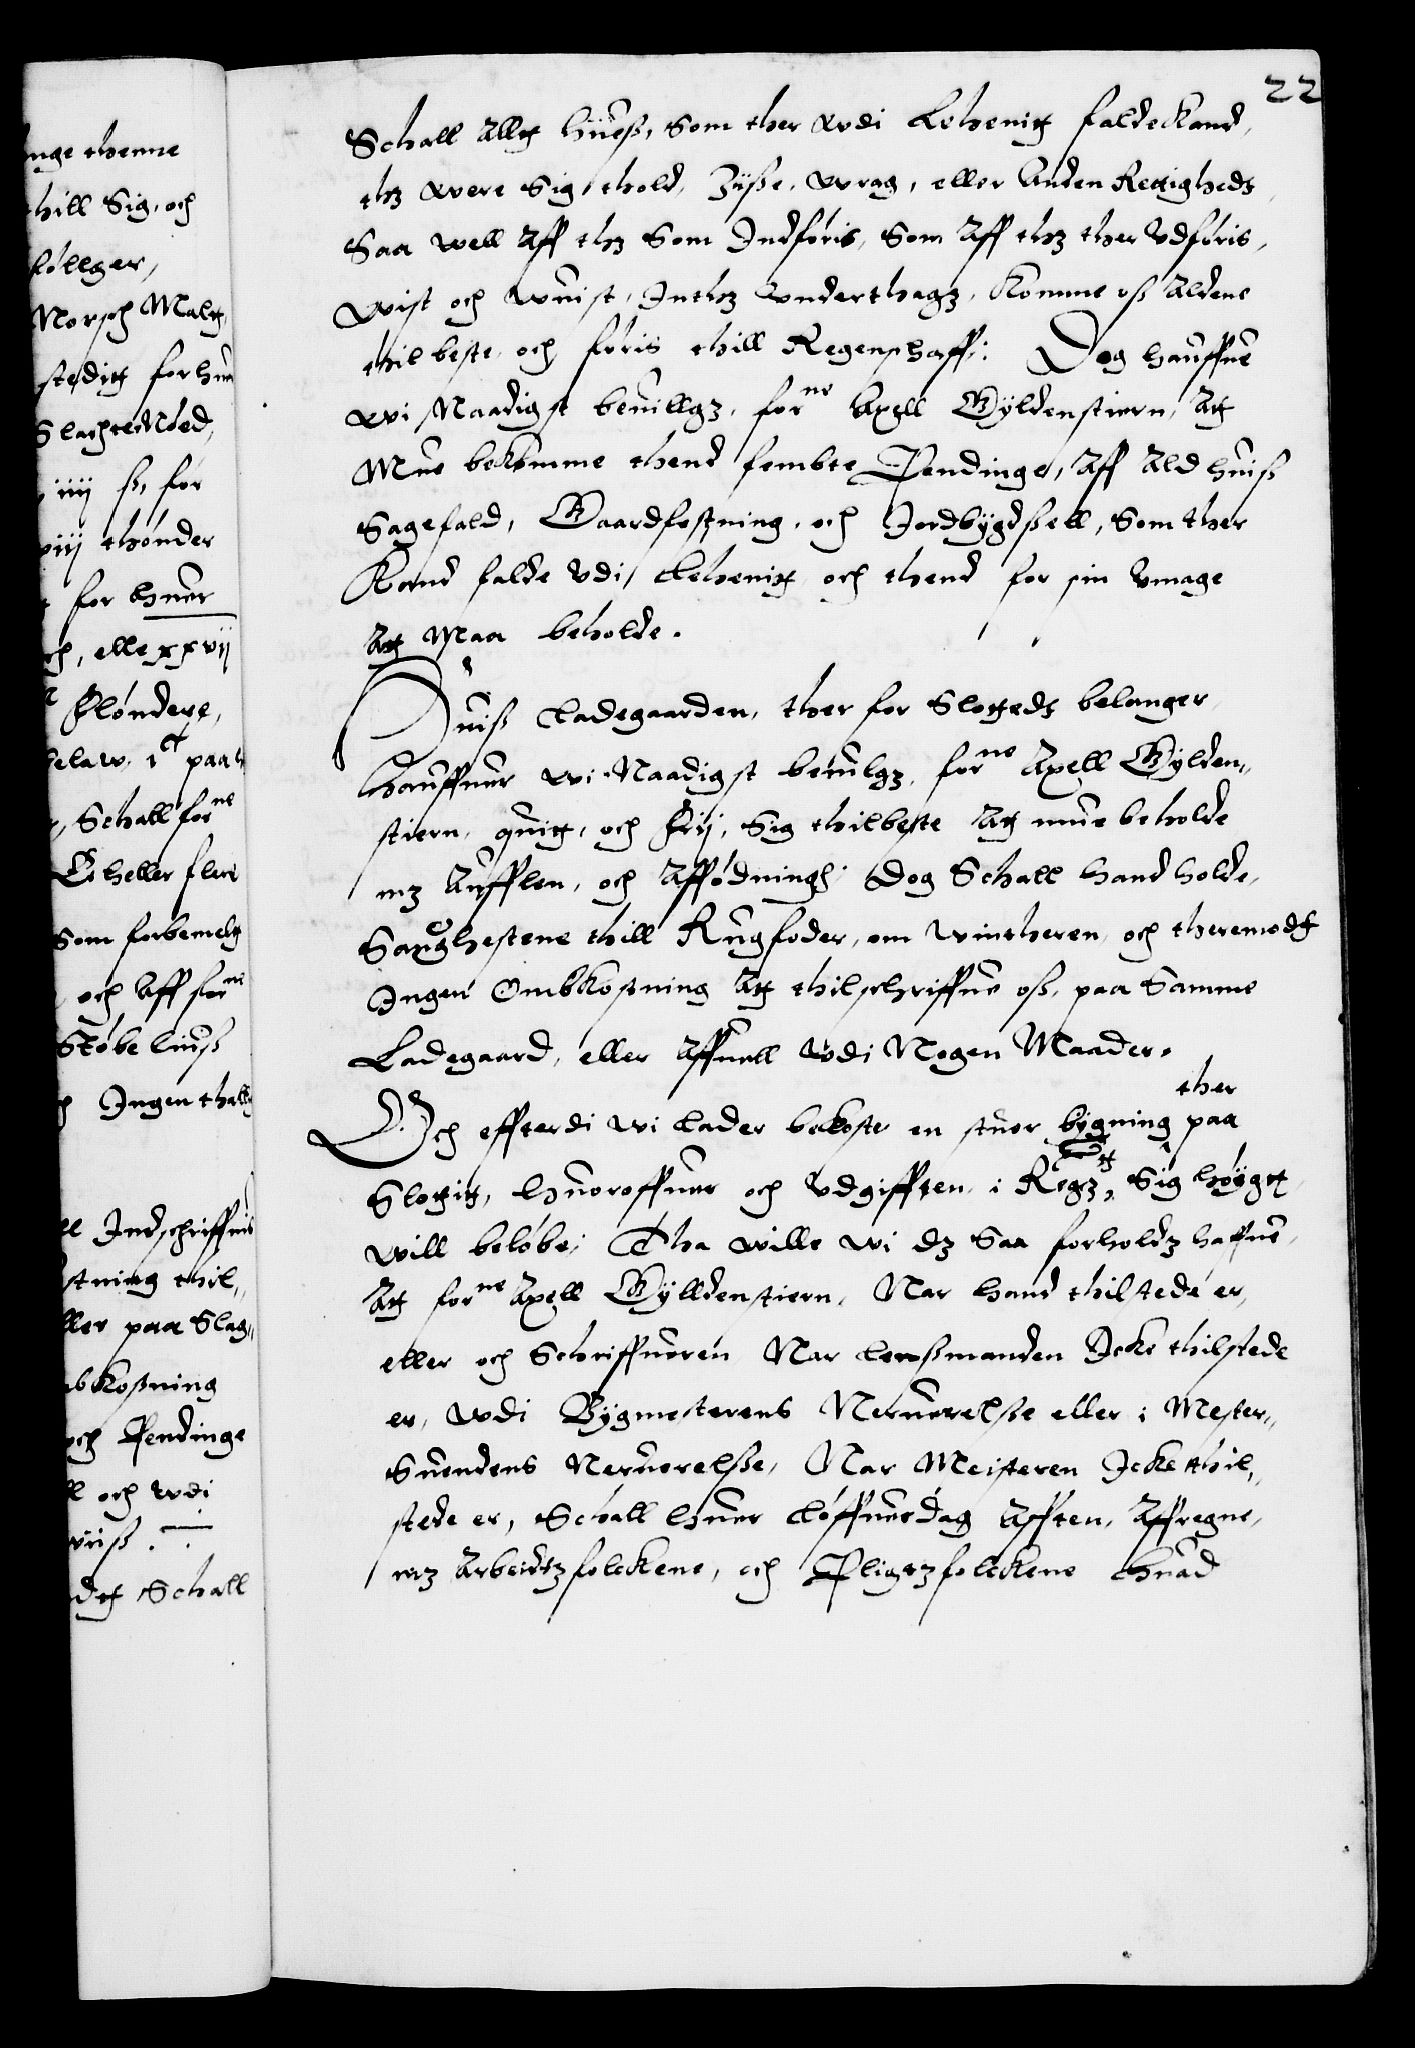 22
Schall Altt huess, som ther wdi Lehenitt falde Kand,
thz were Sig thold, Zisse, wrag, eller Anden Rettighedt,
Saa well Aff thz Som Indføris, Som Aff thz ther Udføris,
wist och wuist, Inthz Underthagz, Komme oss Aldene
thilbeste, och føris thill Regenschaff: Dog hauffue
wi Naadigst beuillgz, forne Axell Gyldenstiern, Att
Mue bekomme thend fembte Pendinge, Aff Ald huiss
Sagefald, Gaardfestning, och Jordbygdssell, Som ther
Kand falde Udi Lehenitt, och thend for sin Umage
Att Maa beholde.
Huiss Ladegaarden, ther for Slottedt belanger,
Hauffuer wi Naadigst beuilgz, forne Axell Gylden„
stiern, quitt, och frij, Sig thilbeste Att mue beholde
mz Aufflen, och Affødningh: Dog Schall hand holde,
Saughestene thill Rugfoder, om wintheren, och theremodt
Ingen Ombkostning Att thilschriffue oss, paa Samme
Ladegaard, eller Affuell Udi Nogen Maader.
Och effterdi wi lader bekoste en stuor bygning ther paa
Slottitt, huoroffuer och Udgifften i Regz, Sig høygtt,
will beløbe; Tha wille wi dz Saa forholdz haffue,
Att forne Axell Gylldenstiern, Nar hand thilstede er,
eller och Schriffueren Nar Lenssmanden Icke thilstede
er, Wdi Bygmesterens Neruerelsse eller i Mester„
Suendens Neruerelsse, Nar Meisteren Icke thil„
stede er, Schall huer Løffuerdag Afften, Affregne,
mz Arbeidtzfolckene, och Pligtzfolckene huad
nge thenne
hill Sig, och
følger,
Norsch Maltt,
steditt for hu
Slachte Nød,
iiij ss, for
viij thønder
for huer
ch, elle xxvij
Fløndere,
Schall forne
heller flere
Som forbemelt
och Aff forne
Støbe liuss
Ingen thall
Indschriffuis
stning thil„
ller paa Slag„
bkostning
och Pendinge
ll och wdi
wiss.
dett Schall